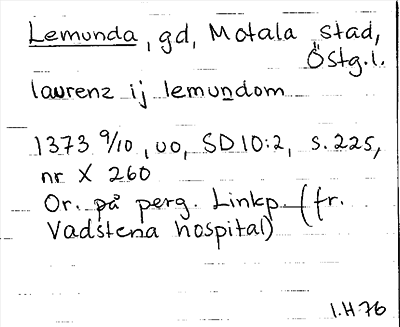 Lemunda, gd, Motala stad,
Östg.l.
laurenz ij lemundom
1373 9/10, uo, SD 10:2, s. 225,
nr X 260
Or. på perg. Linkp (fr.
Vadstena hospital)
I.H.76